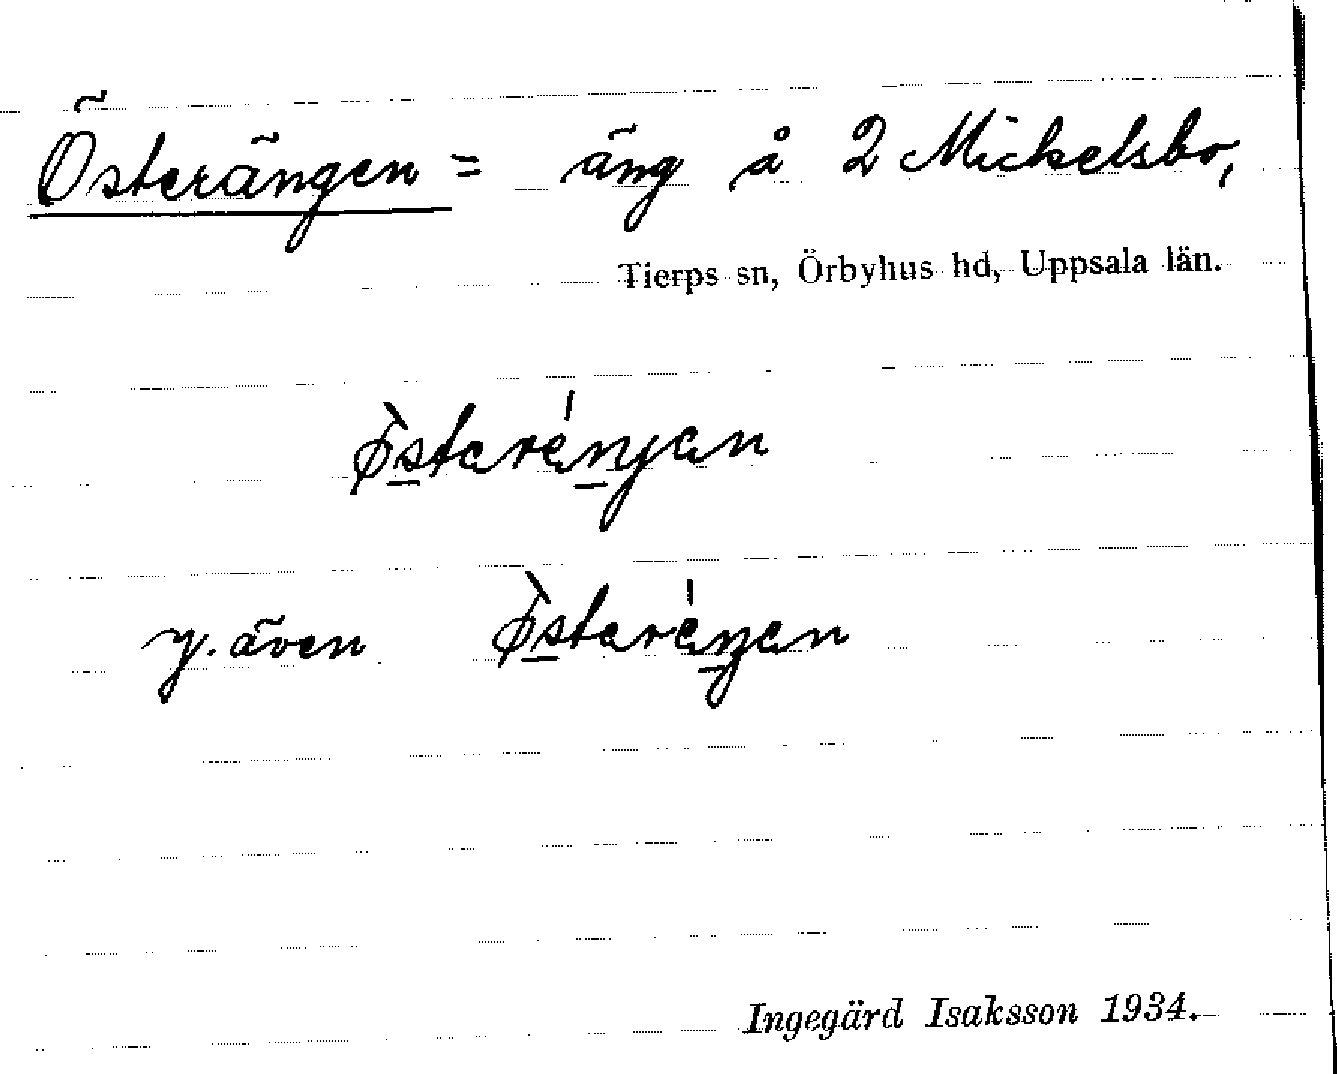 Österängen = äng å 2 Mickelsbo,
Tierps sn, Örbyhus hd, Uppsala län.
y. även
Ingegärd Isaksson 1934.